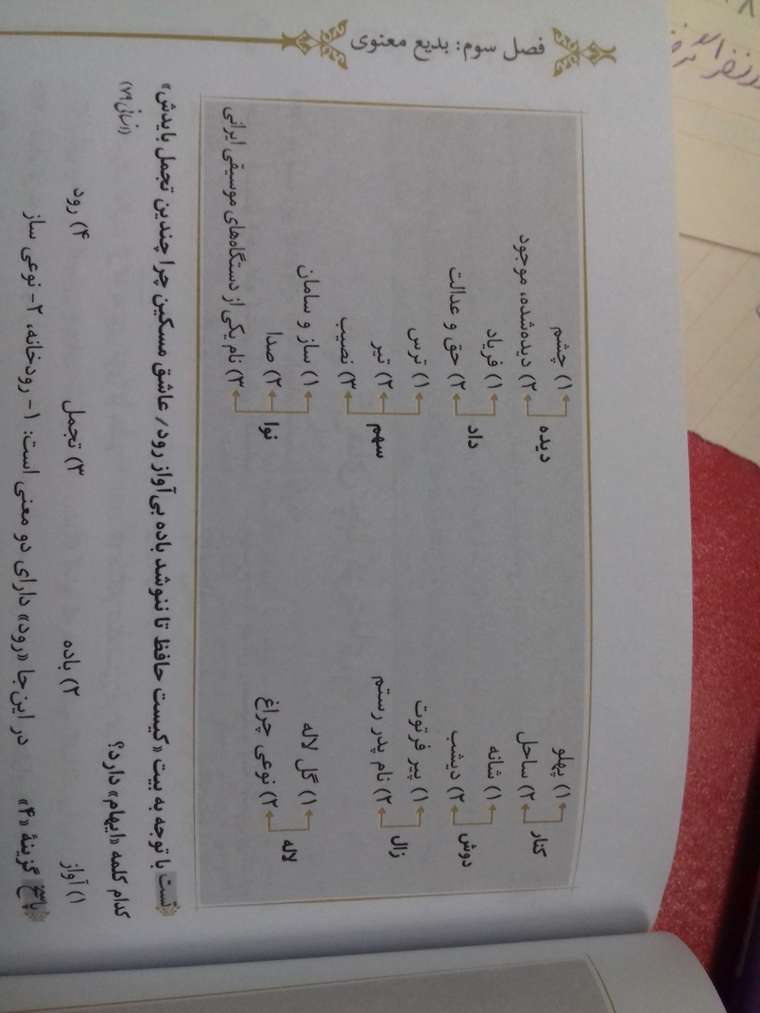 فصل سوم: بدیع معنوی
کنار
۱) پهلو
۲) ساحل
دوش
۱) شانه
۲) دیشب
زال
۱) پیر فرتوت
۲) نام پدر رستم
لاله
۱) گل لاله
۲) نوعی چراغ
دیده
۱) چشم
۲) دیده‌شده، موجود
داد
۱) فریاد
۲) حق و عدالت
سهم
۱) ترس
۲) تیر
۳) نصیب
نوا
۱) ساز و سامان
۲) صدا
۳) نام یکی از دستگاه‌های موسیقی ایرانی
تست با توجه به بیت «کیست حافظ تا ننوشد باده بی‌آواز رود/ عاشق مسکین چرا چندین تجمل بایدش»
کدام کلمه «ایهام» دارد؟ (انسانی ۷۹)
۱) آواز ۲) باده ۳) تجمل ۴) رود
پاسخ گزینهٔ «۴» در این جا «رود» دارای دو معنی است: ۱- رودخانه، ۲- نوعی ساز